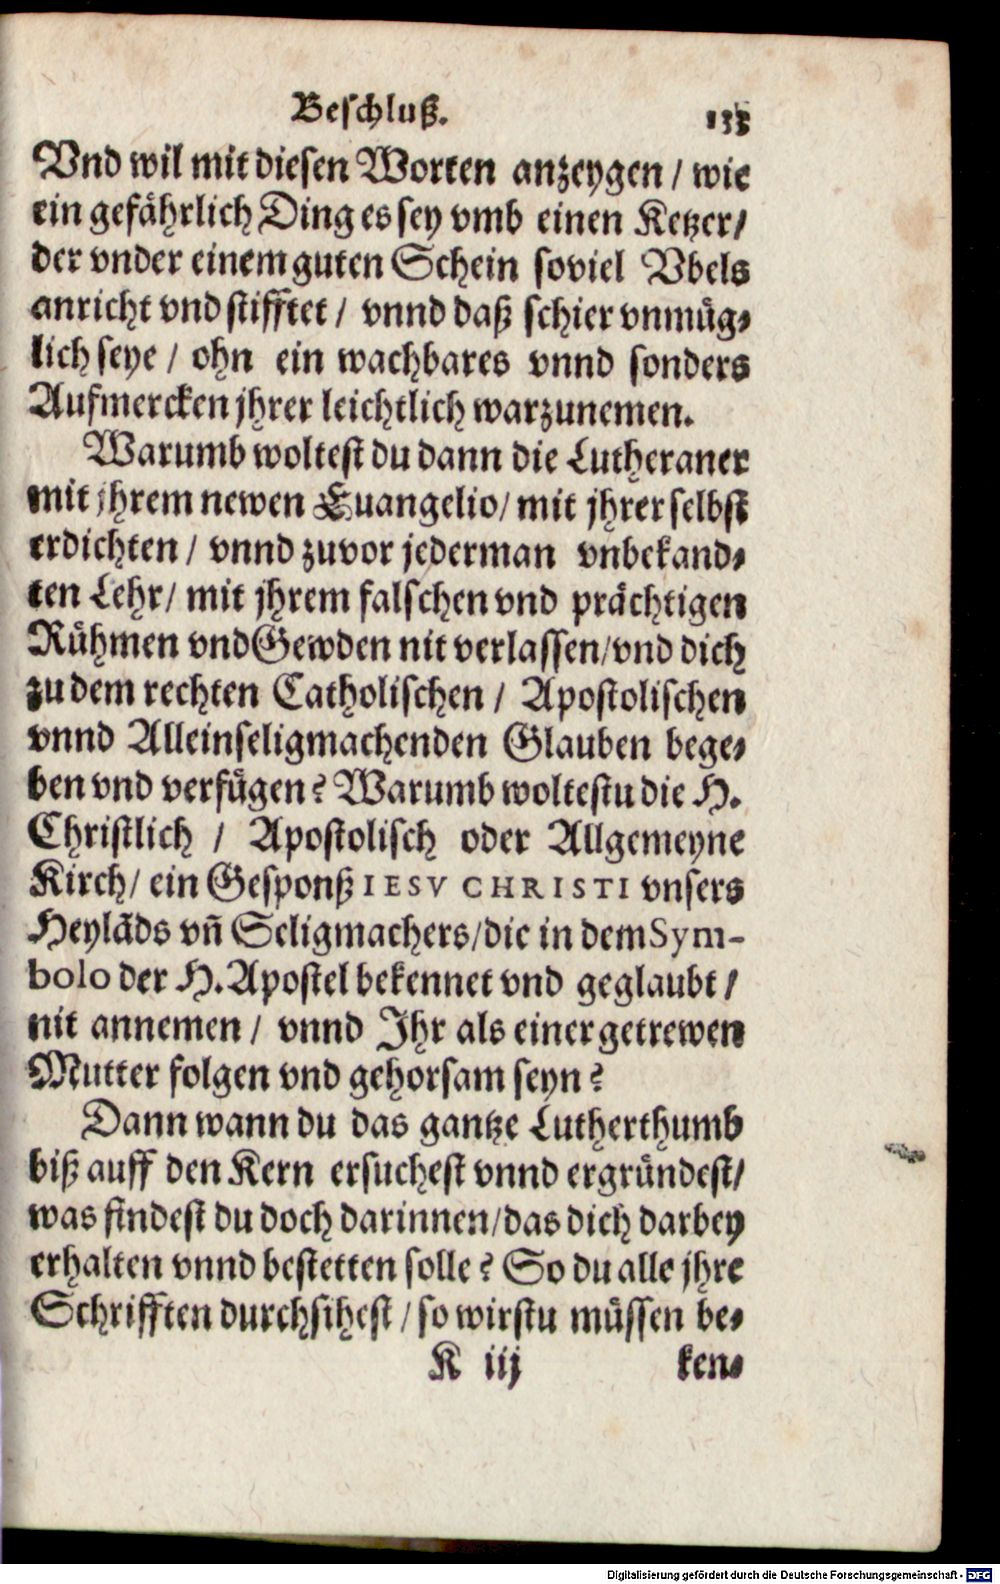 Beschluß. 133
Vnd wil mit diesen Worten anzeygen / wie
ein gefährlich Ding es sey vmb einen Ketzer/
der vnder einem guten Schein soviel Vbels
anricht vnd stifftet / vnnd daß schier vnmüg-
lich seye / ohn ein wachbares vnnd sonders
Aufmercken jhrer leichtlich warzunemen.
Warumb woltest du dann die Lutheraner
mit jhrem newen Euangelio/ mit jhrer selbst
erdichten / vnnd zuvor jederman vnbekand-
ten Lehr/ mit jhrem falschen vnd prächtigen
Rühmen vnd Gewden nit verlassen/vnd dich
zu dem rechten Catholischen / Apostolischen
vnnd Alleinseligmachenden Glauben bege-
ben vnd verfügen? Warumb woltestu die H.
Christlich / Apostolisch oder Allgemeyne
Kirch/ ein Gesponß IESV CHRISTI vnsers
Heylāds vn̄ Seligmachers/die in dem Sym-
bolo der H. Apostel bekennet vnd geglaubt /
nit annemen / vnnd Ihr als einer getrewen
Mutter folgen vnd gehorsam seyn?
Dann wann du das gantze Lutherthumb
biß auff den Kern ersuchest vnnd ergründest/
was findest du doch darinnen/das dich darbey
erhalten vnnd bestetten solle? So du alle jhre
Schrifften durchsihest / so wirstu müssen be-
K iij ken-
Digitalisierung gefördert durch die Deutsche Forschungsgemeinschaft - DFG